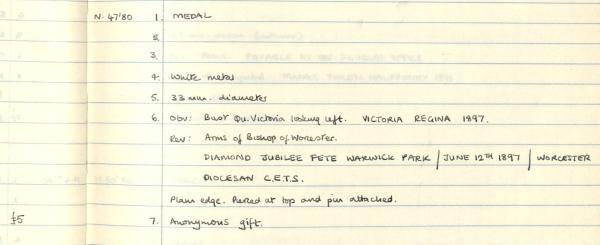 N. 47'80 1. MEDAL
2.
3.
4. White metal
5. 33 mm. diameter
6. Obv: Bust Qu. Victoria looking left. VICTORIA REGINA 1897.
Rev: Arms of Bishop of Worcester.
DIAMOND JUBILEE FETE WARWICK PARK / JUNE 12TH 1897 / WORCESTER
DIOCESAN C.E.T.S.
Plain edge. Pierced at top and pin attached.
£5 7. Anonymous gift.